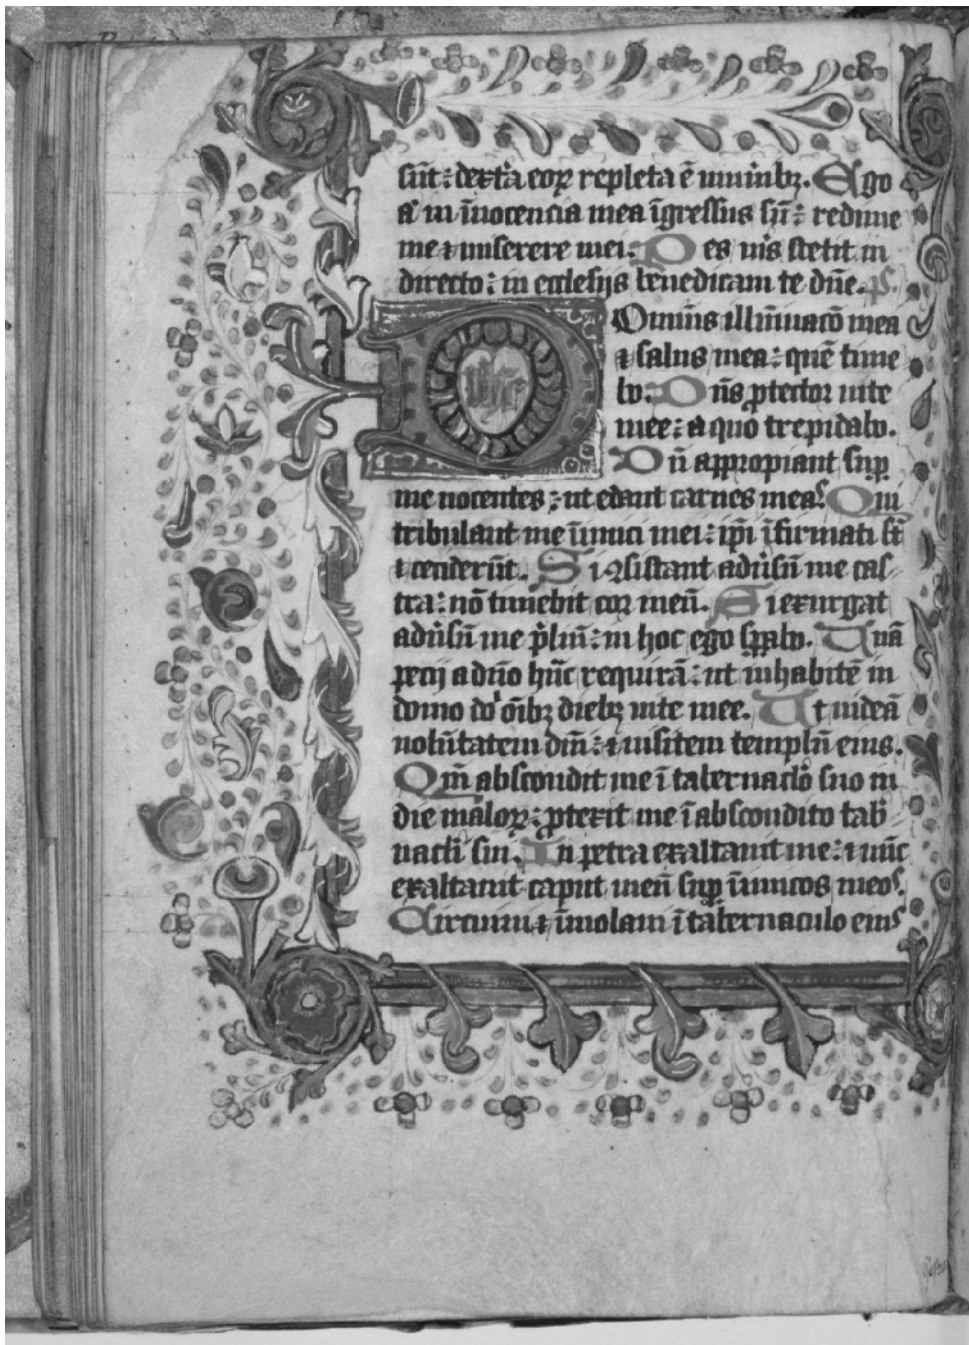 sūt : dext'a eorꝝ repleta ē muīnibꝫ. Ego
aͭ in īnocencia mea īgressus sū : redime
me ⁊ miserere mei : Pes m̄s stetit in
directo : in ecclesijs benedicam te dn̄e. pͨ.
Dominus illūinacō mea
⁊ salus mea : quē time
bo : Dn̄s ꝓtector uite
mee : a quo trepidabo.
Dū appropiant suꝑ
me nocentes : ut edant carnes meas. Qui
tribulant me īnimici mei : ip̄i īfirmati st̄
⁊ ceciderūt. Si ꝯsistant adūsū me cas
tra : nō timebit cor meū. Si exurgat
adūsū me p̄liū : in hoc ego sꝑabo. Vnā
pecij a dn̄o hāc requirā : ut inhabitē in
domo do' oībꝫ diebꝫ uite mee. Ut uideā
nolūtatem dn̄i : ⁊ uisitem templū eius.
Qm̄ abscondit me ī tabernaclo suo in
die malorꝝ : ꝓtexit me ī abscondito tab
nacli sui. In petra exaltauit me : ⁊ nūc
exaltauit caput meū suꝑ īnimicos meos.
Circuiui ⁊ īmolaui ī tabernaculo eius